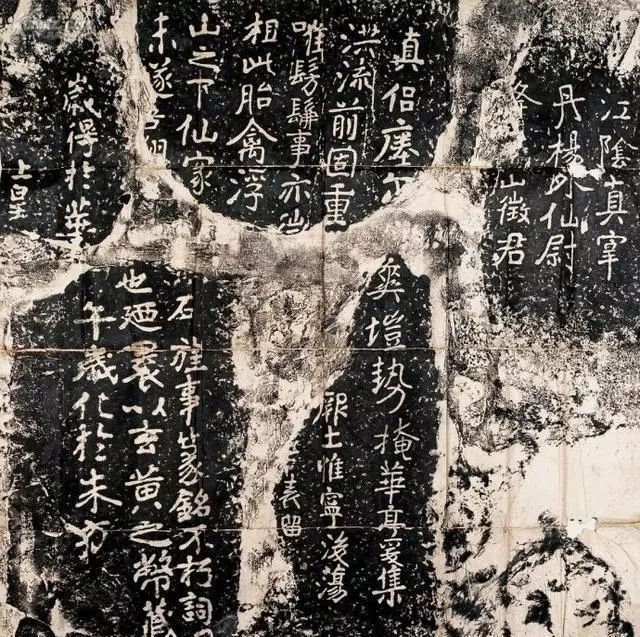 上皇
歲得於華
未遂吾翔
山之下仙家
相此胎禽浮
唯髣髴事亦
洪流前固重
真侶瘞尔
午歲化於朱方
也迺裹以玄黃之幣藏
石旌事篆銘不朽詞曰
表留
厥土惟寧後蕩
爽塏勢掩華亭爰集
山徵君
丹楊外仙尉
江陰真宰